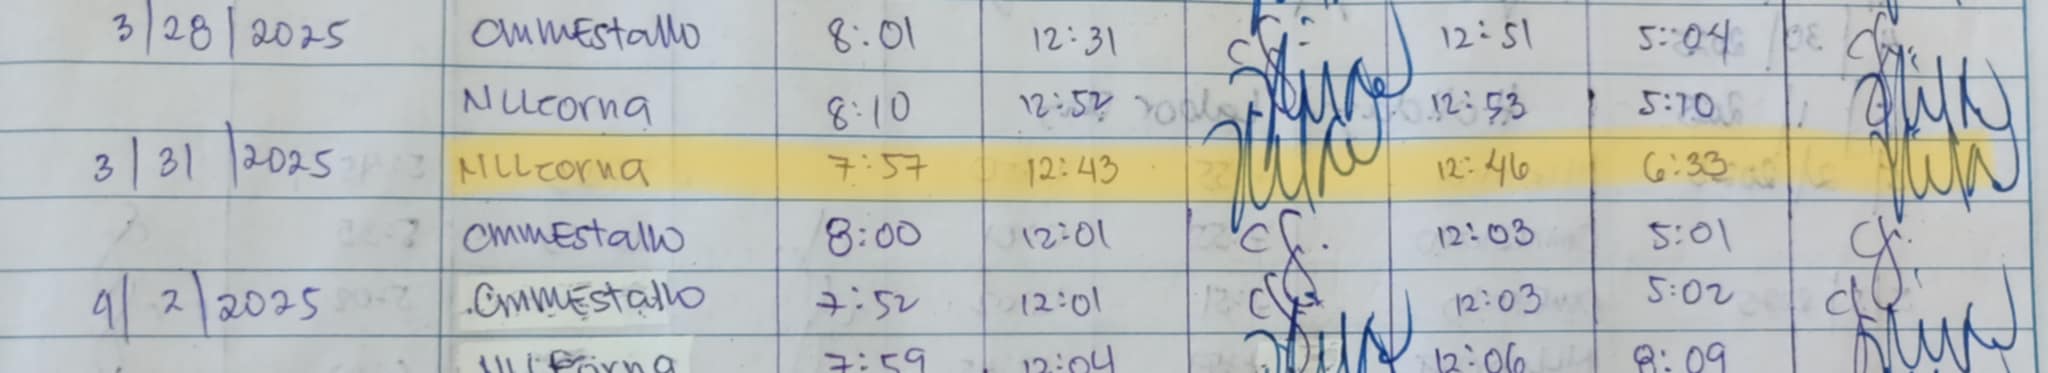 3/28/2025 CMMEstallo 8:01 12:31 12:51 5:04
NLLcorna 8:10 12:52 12:53 5:10
3/31/2025 NLLcorna 7:57 12:43 12:46 6:33
CMMEstallo 8:00 12:01 12:03 5:01
4/2/2025 CMMEstallo 7:52 12:01 12:03 5:02
7:59 12:04 12:06 8:09